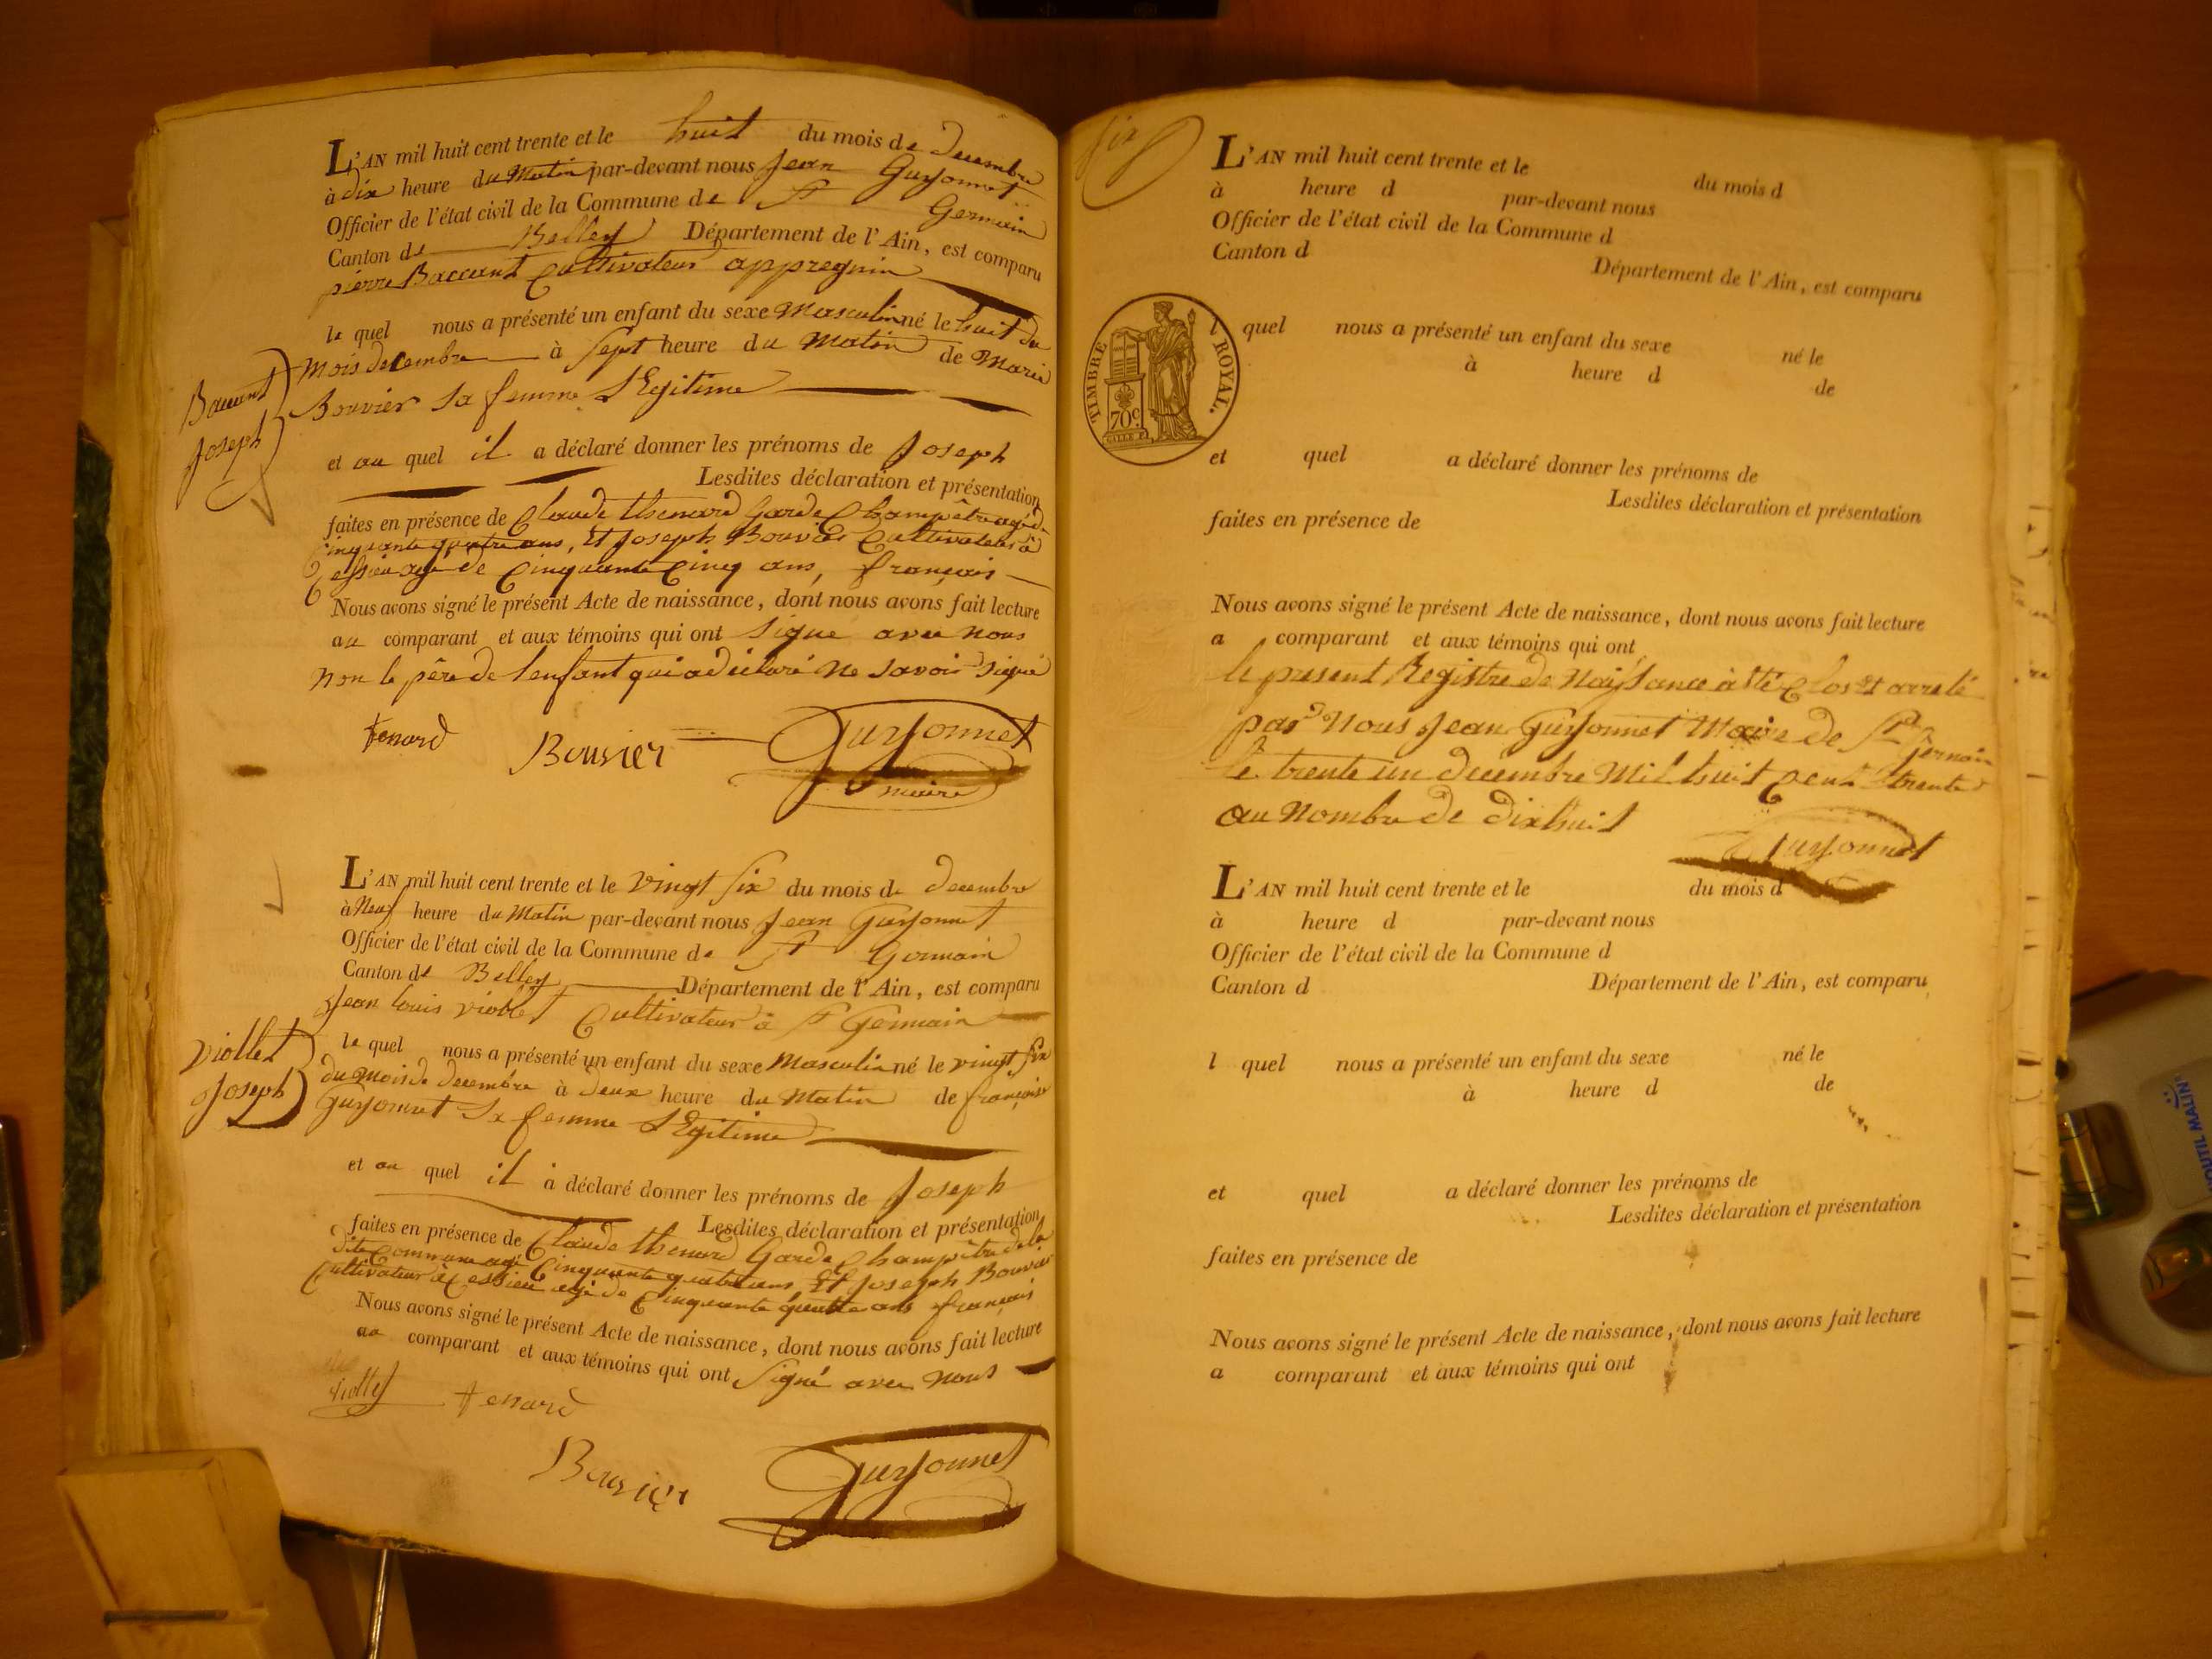 L'AN mil huit cent trente et le huit du mois de decembre
à dix heure du Matin par-devant nous Jean Guyonnet
Officier de l'état civil de la Commune de St Germain
Canton de Belley Département de l'Ain, est comparu
pierre Baccant Cultivateur appregnin
le quel nous a présenté un enfant du sexe Masculin né le huit du
mois decembre à sept heure du Matin de Marie
Bouvier sa femme LEgitime
Baccant
Joseph
et au quel il a déclaré donner les prénoms de Joseph
Lesdites déclaration et présentation
faites en présence de Claude thenard Garde Champêtre agé de
Cinquante quatre ans, Et Joseph Bouvier Cultivateur à
Cessieu agé de Cinquante Cinq ans, français
Nous avons signé le présent Acte de naissance, dont nous avons fait lecture
au comparant et aux témoins qui ont signe avec nous
non le père de l'enfant qui a déclaré ne savoir signé
tenard Bouvier Guyonnet
maire
L'AN mil huit cent trente et le vingt six du mois de decembre
à Neuf heure du Matin par-devant nous Jean Guyonnet
Officier de l'état civil de la Commune de St Germain
Canton de Belley Département de l'Ain, est comparu
Jean louis viollet Cultivateur à St Germain
viollet
Joseph
le quel nous a présenté un enfant du sexe Masculin né le vingt six
du mois de decembre à deux heure du Matin de françoise
Guyonnet sa femme LEgitime
et au quel il a déclaré donner les prénoms de Joseph
Lesdites déclaration et présentation
faites en présence de Claude thenard Garde Champêtre de la
dite Commune agé Cinquante quatre ans, Et Joseph Bouvier
Cultivateur à Cessieu agé de Cinquante quatre ans français
Nous avons signé le présent Acte de naissance, dont nous avons fait lecture
au comparant et aux témoins qui ont Signé avec nous
viollet tenard
Bouvier Guyonnet
six
L'AN mil huit cent trente et le du mois d
à heure d par-devant nous
Officier de l'état civil de la Commune d
Canton d
Département de l'Ain, est comparu
TIMBRE ROYAL.
70c.
l quel nous a présenté un enfant du sexe né le
à heure d de
et quel a déclaré donner les prénoms de
Lesdites déclaration et présentation
faites en présence de
Nous avons signé le présent Acte de naissance, dont nous avons fait lecture
a comparant et aux témoins qui ont
le present Registre de Naissance à été Clos et arreté
par Nous Jean Guyonnet Maire de St Germain
le trente un decembre Mil huit Cent trente
au Nombre de dixhuit
Guyonnet
L'AN mil huit cent trente et le du mois d
à heure d par-devant nous
Officier de l'état civil de la Commune d
Canton d Département de l'Ain, est comparu
l quel nous a présenté un enfant du sexe né le
à heure d de
et quel a déclaré donner les prénoms de
Lesdites déclaration et présentation
faites en présence de
Nous avons signé le présent Acte de naissance, dont nous avons fait lecture
a comparant et aux témoins qui ont
OUTIL MALIN